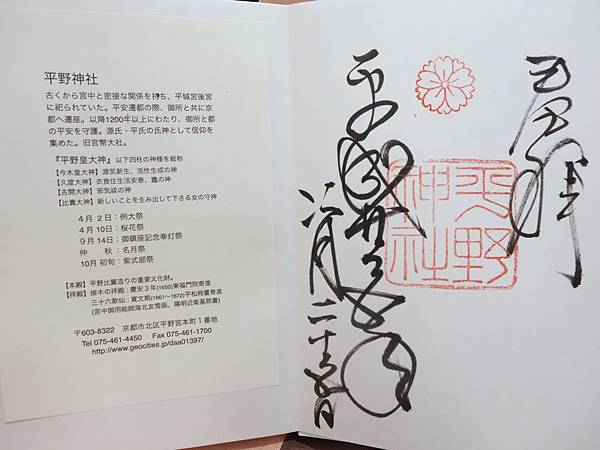 平野神社
古くから宮中と密接な関係を持ち、平城宮後宮
に祀られていた。平安遷都の際、御所と共に京
都へ遷座。以降1200年以上にわたり、御所と都
の平安を守護。源氏・平氏の氏神として信仰を
集めた。旧官幣大社。
『平野皇大神』以下四柱の神様を総称
【今木皇大神】源気新生、活性生成の神
【久度大神】衣食住生活安泰、竈の神
【古開大神】邪気祓の神
【比賣大神】新しいことを生み出して下さる女の守神
4月 2日：例大祭
4月10日：桜花祭
9月14日：御鎮座記念奉灯祭
仲 秋：名月祭
10月 初旬：紫式部祭
【本殿】平野比翼造りの重要文化財。
【拝殿】接木の拝殿：慶安3年(1650)東福門院寄進
三十六歌仙：寛文期(1661〜1672)平松時量寄進
(宮中御用絵師海北友雪画、陽明近衛基熙書)
〒603-8322 京都市北区平野宮本町1番地
Tel 075-461-4450 Fax 075-461-1700
http://www.geocities.jp/daa01397/
平野神社
平成
六月二十
日
拝